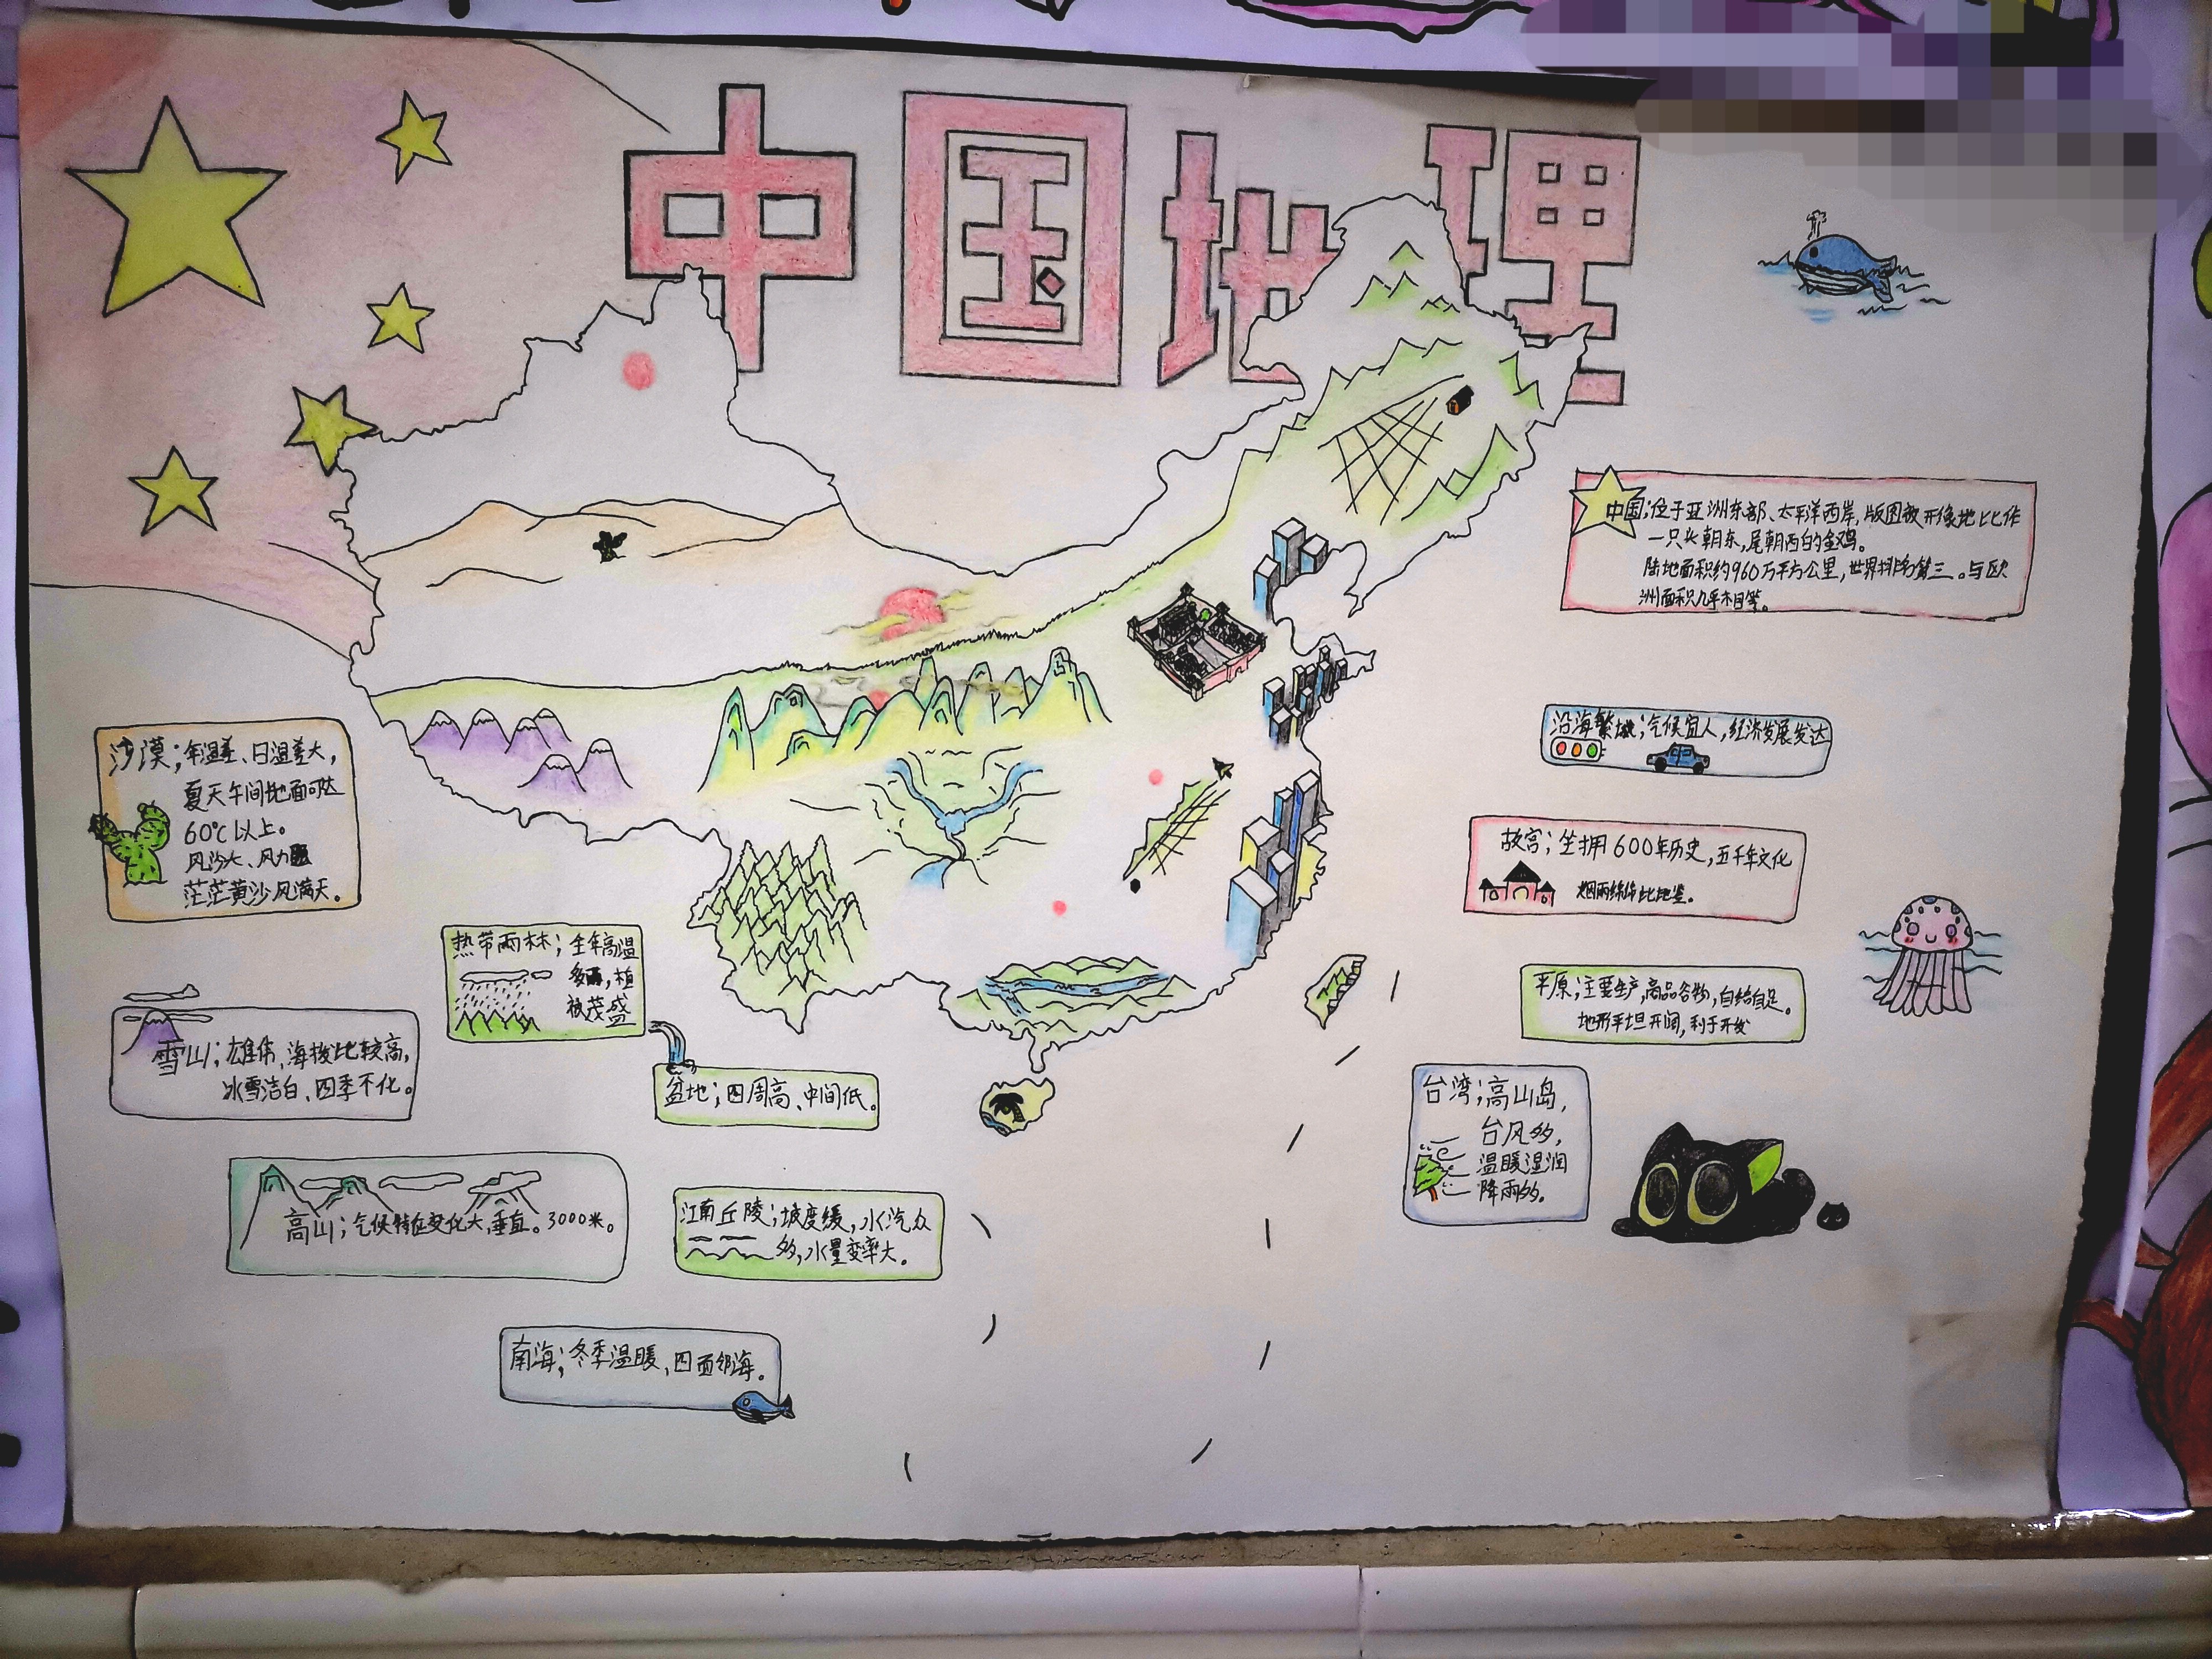 中国地理
中国;位于亚洲东部、太平洋西岸,版图被形像地比作
一只头朝东,尾朝西的金鸡。
陆地面积约960万平方公里,世界排名第三。与欧
洲面积几乎相等。
沿海繁城;气候宜人,经济发展发达
故宫;坐拥600年历史,五千年文化
平原;主要生产,商品谷物,自给自足。
地形平坦开阔,利于开发
台湾;高山岛,
台风多,
温暖湿润
降雨多。
沙漠;年温差、日温差大,
夏天午间地面可达
60℃以上。
风沙大、风力
茫茫黄沙风满天。
热带雨林;全年高温
多雨,植
被茂盛
雪山;雄伟、海拔比较高,
冰雪洁白、四季不化。
盆地;四周高、中间低。
高山;气候特征变化大,垂直。3000米。
江南丘陵;坡度缓,水汽众
多,水量变率大。
南海;冬季温暖,四面邻海。